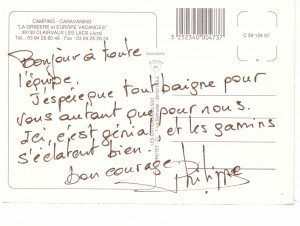 CAMPING - CARAVANING
"LA GRISIERE et EUROPE VACANCES"
39130 CLAIRVAUX LES LACS (Jura)
Tél : 03 84 25 80 48 - Fax : 03 84 25 26 34
3 252340 004737
C 39 154 97
Bonjour à toute
l'équipe.
J'espère que tout baigne pour
vous autant que pour nous.
Ici, c'est génial et les gamins
s'éclatent bien !
Bon courage
Philippe